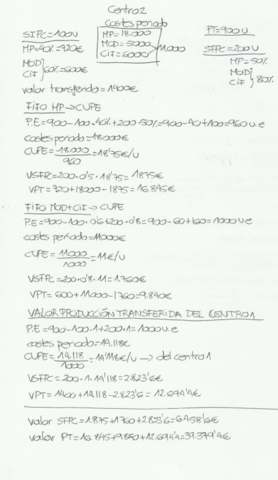 Centro 2
Costes periodo
SIPC=100u
MP=18.000
MOD=5000
CIF=6000
11000
PT=900u
MP=40%=720€
MOD
CIF
60%=600€
SFPC=200u
MP=50%
MOD
CIF
80%
valor transferido=1400€
FIFO MP→CUPE
P.E=900-100·40%+200·50%=900-40+100=960 u.e
costes periodo=18000€
CUPE=18000/960=18'75€/u
VSFPC=200·0'5·18'75=1875€
VPT=720+18000-1875=16.845€
FIFO MOD+CIF→CUPE
P.E=900-100·0'6+200·0'8=900-60+160=1000 u.e
costes periodo=11000€
CUPE=11000/1000=11€/u
VSFPC=200·0'8·11=1.760€
VPT=600+11000-1760=9.840€
VALOR PRODUCCIÓN TRANSFERIDA DEL CENTRO 1
P.E=900-100·1+200·1=1000 u.e
costes periodo=14.118€
CUPE=14.118/1000=14'118€/u → del centro 1
VSFPC=200·1·14'118=2.823'6€
VPT=1400+14.118-2.823'6=12.694'4€
valor SFPC=1.875+1.760+2.823'6=6.458'6€
valor PT=16.845+9.840+12.694'4=39.379'4€